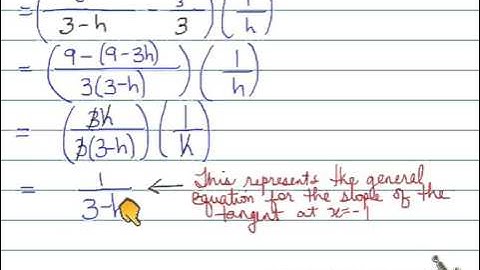 = ( / 3-h - 3/3 ) ( 1/h )
= ( 9-(9-3h) / 3(3-h) ) ( 1/h )
= ( 3h / 3(3-h) ) ( 1/h )
= 1 / 3-h ← This represents the general
equation for the slope of the
tangent at x=-1